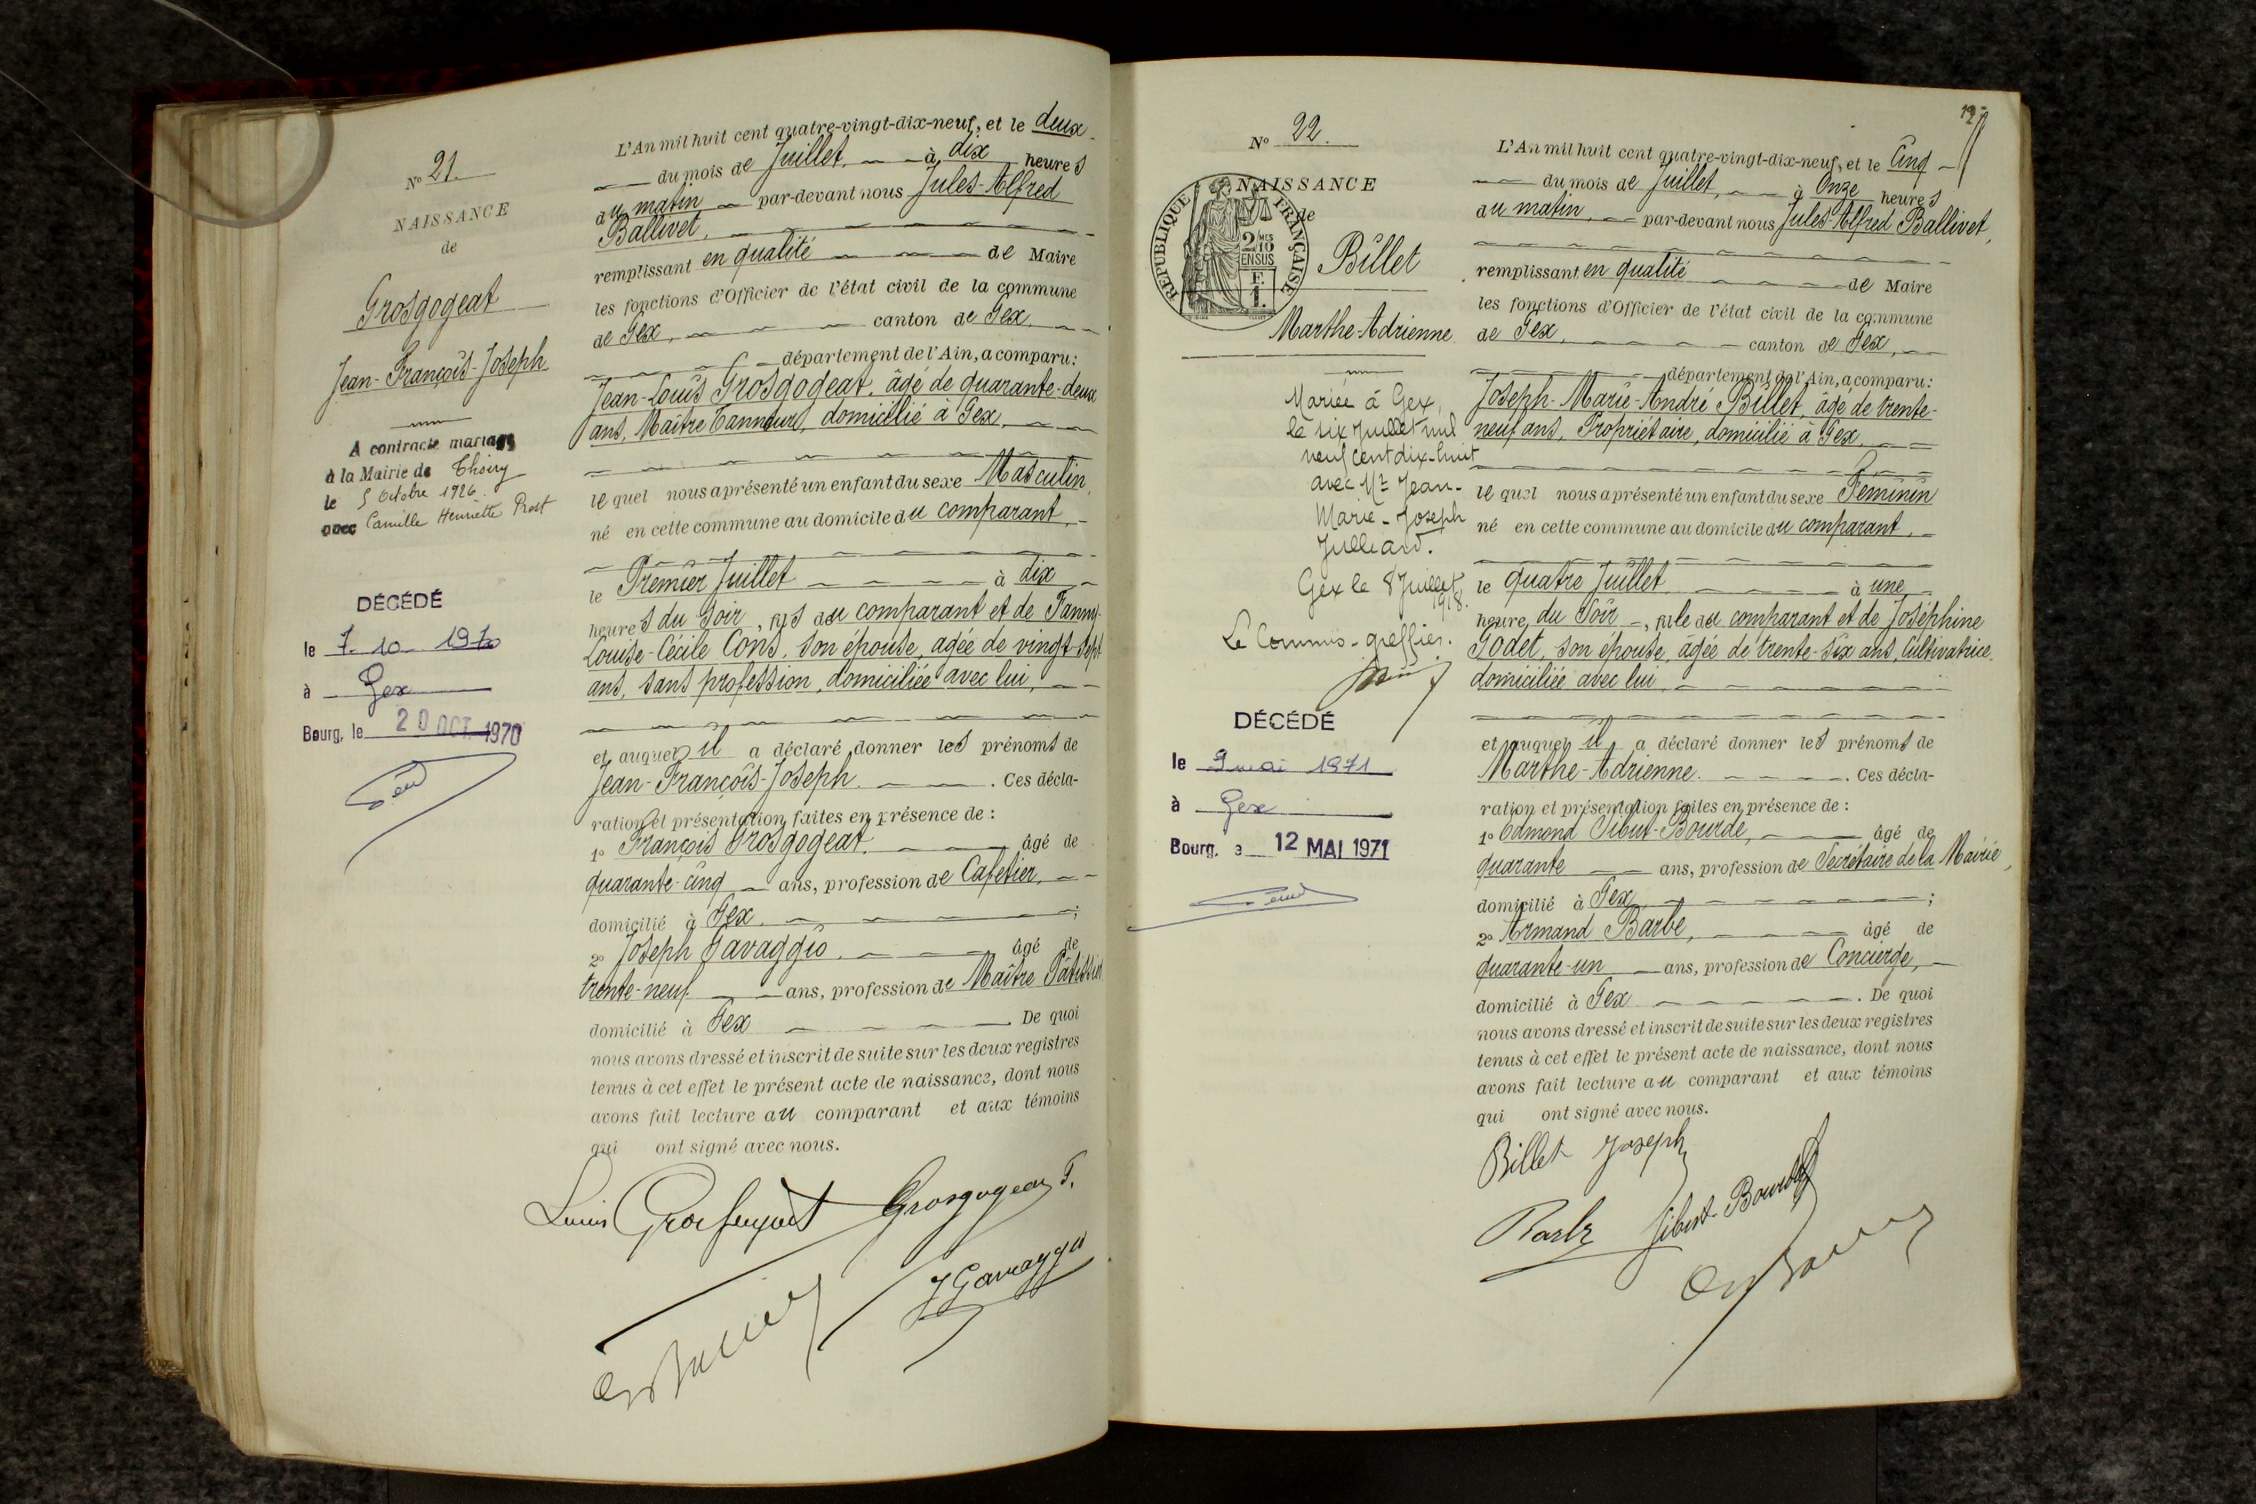 N° 21.
NAISSANCE
de
Grosgogeat
Jean-François-Joseph
A contracté mariage
à la Mairie de Thoiry
le 5 Octobre 1926.
avec Camille Henriette Prost
DÉCÉDÉ
le 7-10-1970
à Gex
Bourg, le 20 OCT. 1970
L'An mil huit cent quatre-vingt-dix-neuf, et le deux
du mois de Juillet à dix heures
du matin par-devant nous Jules-Alfred
Ballivet,
remplissant en qualité de Maire
les fonctions d'Officier de l'état civil de la commune
de Gex, canton de Gex
département de l'Ain, a comparu:
Jean-Louis Grosgogeat, âgé de quarante-deux
ans, Maître Tanneur, domicilié à Gex,
lequel nous a présenté un enfant du sexe Masculin,
né en cette commune au domicile du comparant,
le Premier Juillet à dix
heures du soir, fils du comparant et de Fanny-
Louise-Cécile Cons, son épouse, agée de vingt-sept
ans, sans profession, domiciliée avec lui,
et auquel il a déclaré donner les prénoms de
Jean-François-Joseph. Ces décla-
ration et présentation faites en présence de :
1° François Grosgogeat âgé de
quarante-cinq ans, profession de Cafetier,
domicilié à Gex ;
2° Joseph Gavaggio âgé de
trente-neuf ans, profession de Maître Pâtissier
domicilié à Gex De quoi
nous avons dressé et inscrit de suite sur les deux registres
tenus à cet effet le présent acte de naissance, dont nous
avons fait lecture au comparant et aux témoins
qui ont signé avec nous.
Louis Grosgogeat Grosgogeat F.
J Gavaggio
19
N° 22.
NAISSANCE
de
RÉPUBLIQUE FRANÇAISE
2 MES 10
EN SUS
F.
1.
Billet
Marthe-Adrienne
Mariée à Gex,
le six Juillet mil
neuf cent dix-huit
avec Mr Jean-
Marie-Joseph
Julliard.
Gex le 8 Juillet
1918.
Le Commis-greffier.
DÉCÉDÉ
le 9 mai 1971
à Gex
Bourg, le 12 MAI 1971
L'An mil huit cent quatre-vingt-dix-neuf, et le Cinq
du mois de Juillet, à Onze heures
du matin, par-devant nous Jules-Alfred Ballivet,
remplissant en qualité de Maire
les fonctions d'Officier de l'état civil de la commune
de Gex, canton de Gex,
département de l'Ain, a comparu:
Joseph-Marie-André Billet, âgé de trente-
neuf ans, Propriétaire, domicilié à Gex,
lequel nous a présenté un enfant du sexe Féminin
né en cette commune au domicile du comparant,
le quatre Juillet à une
heure du soir, fille du comparant et de Joséphine
Godet, son épouse, âgée de trente-six ans, Cultivatrice,
domiciliée avec lui
et auquel il a déclaré donner les prénoms de
Marthe-Adrienne. Ces décla-
ration et présentation faites en présence de :
1° Edmond Gibut-Bourde, âgé de
quarante ans, profession de Secrétaire de la Mairie,
domicilié à Gex ;
2° Armand Barbe, âgé de
quarante-un ans, profession de Concierge,
domicilié à Gex. De quoi
nous avons dressé et inscrit de suite sur les deux registres
tenus à cet effet le présent acte de naissance, dont nous
avons fait lecture au comparant et aux témoins
qui ont signé avec nous.
Billet Joseph
Barbe